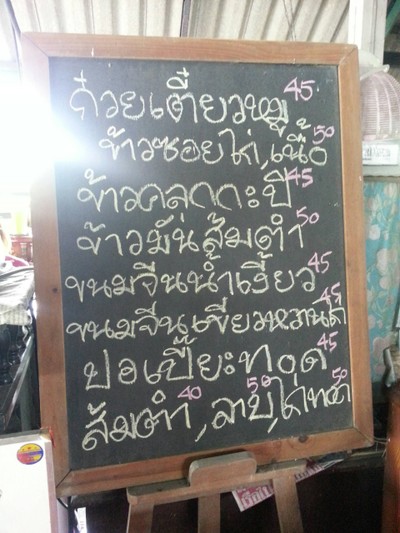 ก๋วยเตี๋ยวหมู 45
ข้าวซอยไก่,เนื้อ 50
ข้าวคลุกกะปิ 45
ข้าวมันส้มตำ 50
ขนมจีนน้ำเงี้ยว 45
ขนมจีนเขียวหวานไก่ 45
ปอเปี๊ยะทอด 45
ส้มตำ 40, ลาบ 50, ไก่ทอด 50